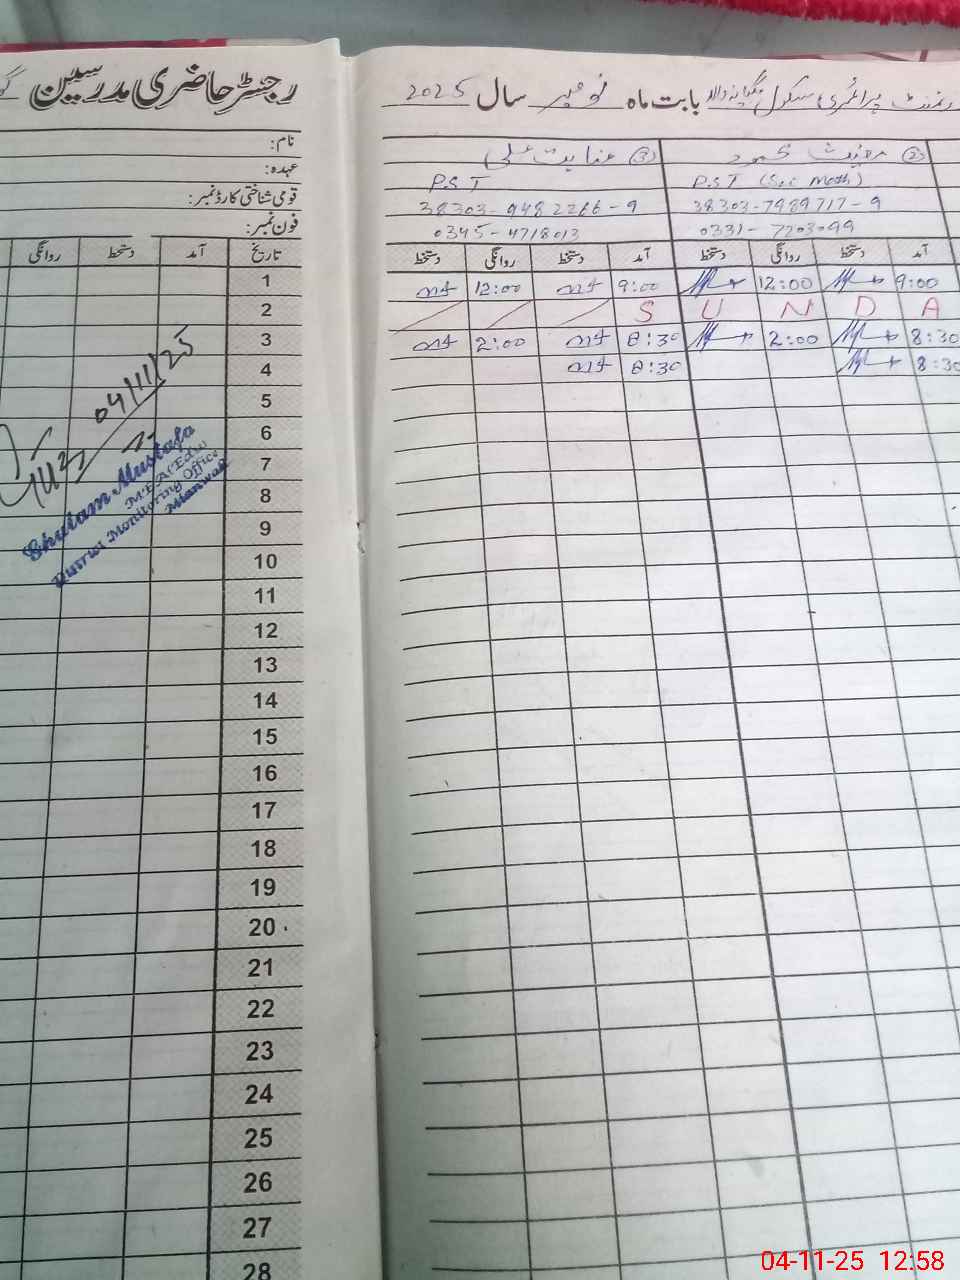 رجسٹر حاضری مدرسین
نام:
عہدہ:
قومی شناختی کارڈ نمبر:
فون نمبر:
روانگی دستخط آمد تاریخ
1
2
3
4
5
6
7
8
9
10
11
12
13
14
15
16
17
18
19
20
21
22
23
24
25
26
27
28
04/11/25
Ghulam Mustafa
M.E.A (Edu)
District Monitoring Office
Mianwali
پرائمری سکول بابت ماہ نومبر سال 2025
② محمود
P.S.T (Sci Math)
38303-7989717-9
0331-7203099
③ عنایت علی
P.S.T
38303-9482266-9
0345-4718013
آمد دستخط روانگی دستخط آمد دستخط روانگی دستخط
9:00 12:00 9:00 12:00
A D N U S
8:30 2:00 8:30 2:00
8:30 8:30
04-11-25 12:58